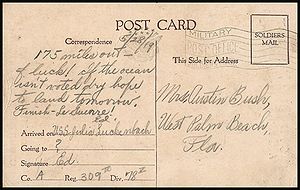 POST CARD
MILITARY
POST OFFICE
SOLDIERS
MAIL
Correspondence
This Side for Address
175 miles out
of luck! if the ocean
isn't voted dry hope
to land tomorrow.
Finish
Mrs Austin Bush,
West Palm Beach,
Fla.
Arrived on USS Julia Luckenbach
Going to ?
Signature Ed.
Co. A Reg. 309th Div. 78th